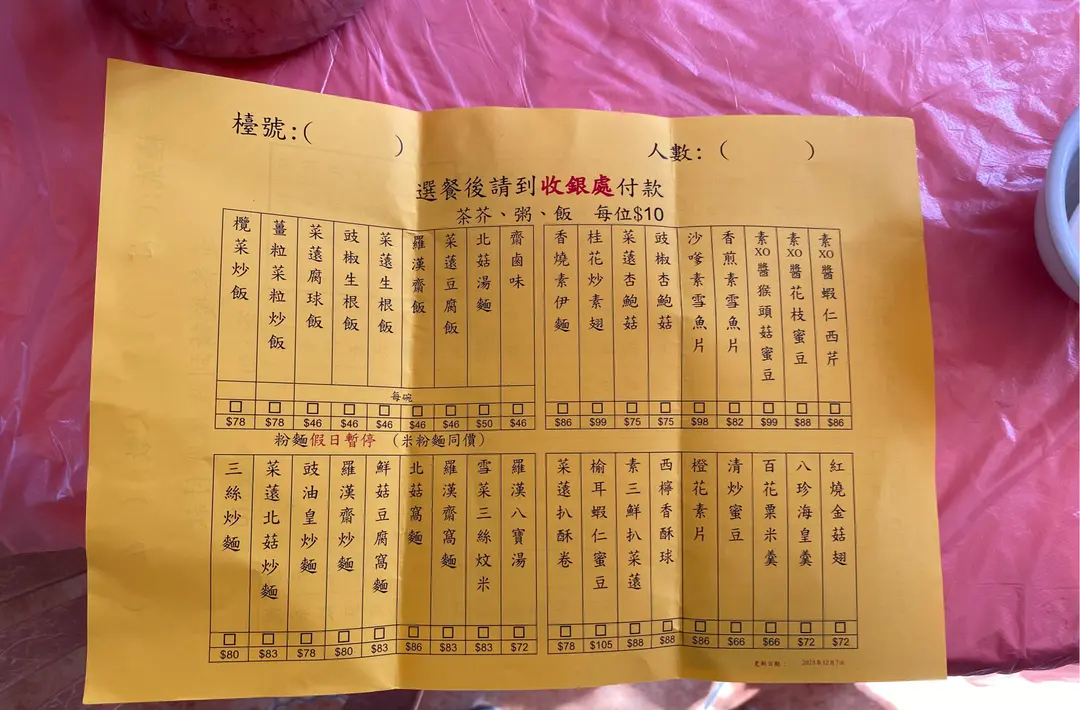 檯號:( )
人數:( )
選餐後請到收銀處付款
茶芥、粥、飯 每位$10
素XO醬蝦仁西芹 □ $86
素XO醬花枝蜜豆 □ $88
素XO醬猴頭菇蜜豆 □ $99
香煎素雪魚片 □ $82
沙嗲素雪魚片 □ $98
豉椒杏鮑菇 □ $75
菜薳杏鮑菇 □ $75
桂花炒素翅 □ $99
香燒素伊麵 □ $86
齋鹵味 □ $46
北菇湯麵 □ $50
菜薳豆腐飯 □ $46
羅漢齋飯 □ $46
菜薳生根飯 □ $46
豉椒生根飯 □ $46
菜薳腐球飯 □ $46
薑粒菜粒炒飯 □ $78
欖菜炒飯 □ $78
每碗
粉麵假日暫停 (米粉麵同價)
紅燒金菇翅 □ $72
八珍海皇羹 □ $72
百花粟米羹 □ $66
清炒蜜豆 □ $66
橙花素片 □ $86
西檸香酥球 □ $88
素三鮮扒菜薳 □ $88
榆耳蝦仁蜜豆 □ $105
菜薳扒酥卷 □ $78
羅漢八寶湯 □ $72
雪菜三絲炆米 □ $83
羅漢齋窩麵 □ $83
北菇窩麵 □ $86
鮮菇豆腐窩麵 □ $83
羅漢齋炒麵 □ $80
豉油皇炒麵 □ $78
菜薳北菇炒麵 □ $83
三絲炒麵 □ $80
更新日期: 2023年12月7日